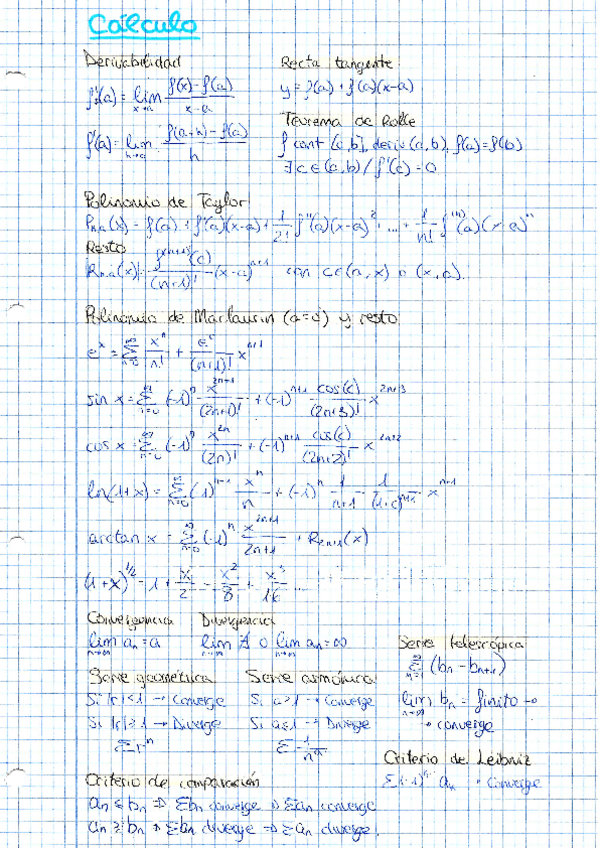 Cálculo
Derivabilidad
f'(a) = lim x→a (f(x) - f(a)) / (x - a)
f'(a) = lim h→0 (f(a+h) - f(a)) / h
Recta tangente
y = f(a) + f'(a)(x-a)
Teorema de Rolle
f cont [a,b], deriv (a,b), f(a) = f(b)
∃ c ∈ (a,b) / f'(c) = 0
Polinomio de Taylor
Pn,a(x) = f(a) + f'(a)(x-a) + 1/2! f''(a)(x-a)² + ... + 1/n! f⁽ⁿ⁾(a)(x-a)ⁿ
Resto
Rn,a(x) = f⁽ⁿ⁺¹⁾(c) / (n+1)! (x-a)ⁿ⁺¹ con c∈(a,x) o (x,a).
Polinomio de Maclaurin (a=0) y resto
eˣ = Σ n=0 xⁿ/n! + eᶜ/(n+1)! xⁿ⁺¹
sin x = Σ n=0 (-1)ⁿ x²ⁿ⁺¹/(2n+1)! + (-1)ⁿ⁺¹ cos(c)/(2n+3)! x²ⁿ⁺³
cos x = Σ n=0 (-1)ⁿ x²ⁿ/(2n)! + (-1)ⁿ⁺¹ cos(c)/(2n+2)! x²ⁿ⁺²
ln(1+x) = Σ n=0 (-1)ⁿ⁻¹ xⁿ/n + (-1)ⁿ 1/(n+1) 1/(1+c)ⁿ⁺¹ xⁿ⁺¹
arctan x = Σ n=0 (-1)ⁿ x²ⁿ⁺¹/(2n+1) + R2n+1(x)
(1+x)^1/2 = 1 + x/2 - x²/8 + x³/16 ...
Convergencia
lim n→∞ an = a
Divergencia
lim n→∞ ∄ o lim n→∞ an = ∞
Serie telescópica
Σ n=1 (bn - bn+1)
lim n→∞ bn = finito →
→ converge
Serie geométrica
Si |r| < 1 → Converge
Si |r| ≥ 1 → Diverge
Σ rⁿ
Serie armónica
Si a>1 → Converge
Si a≤1 → Diverge
Σ 1/nᵃ
Criterio de Leibniz
Σ(-1)ⁿ an → Converge
Criterio de comparación
an ≤ bn ⇒ Σbn converge ⇒ Σan converge
an ≥ bn ⇒ Σbn diverge ⇒ Σan diverge.